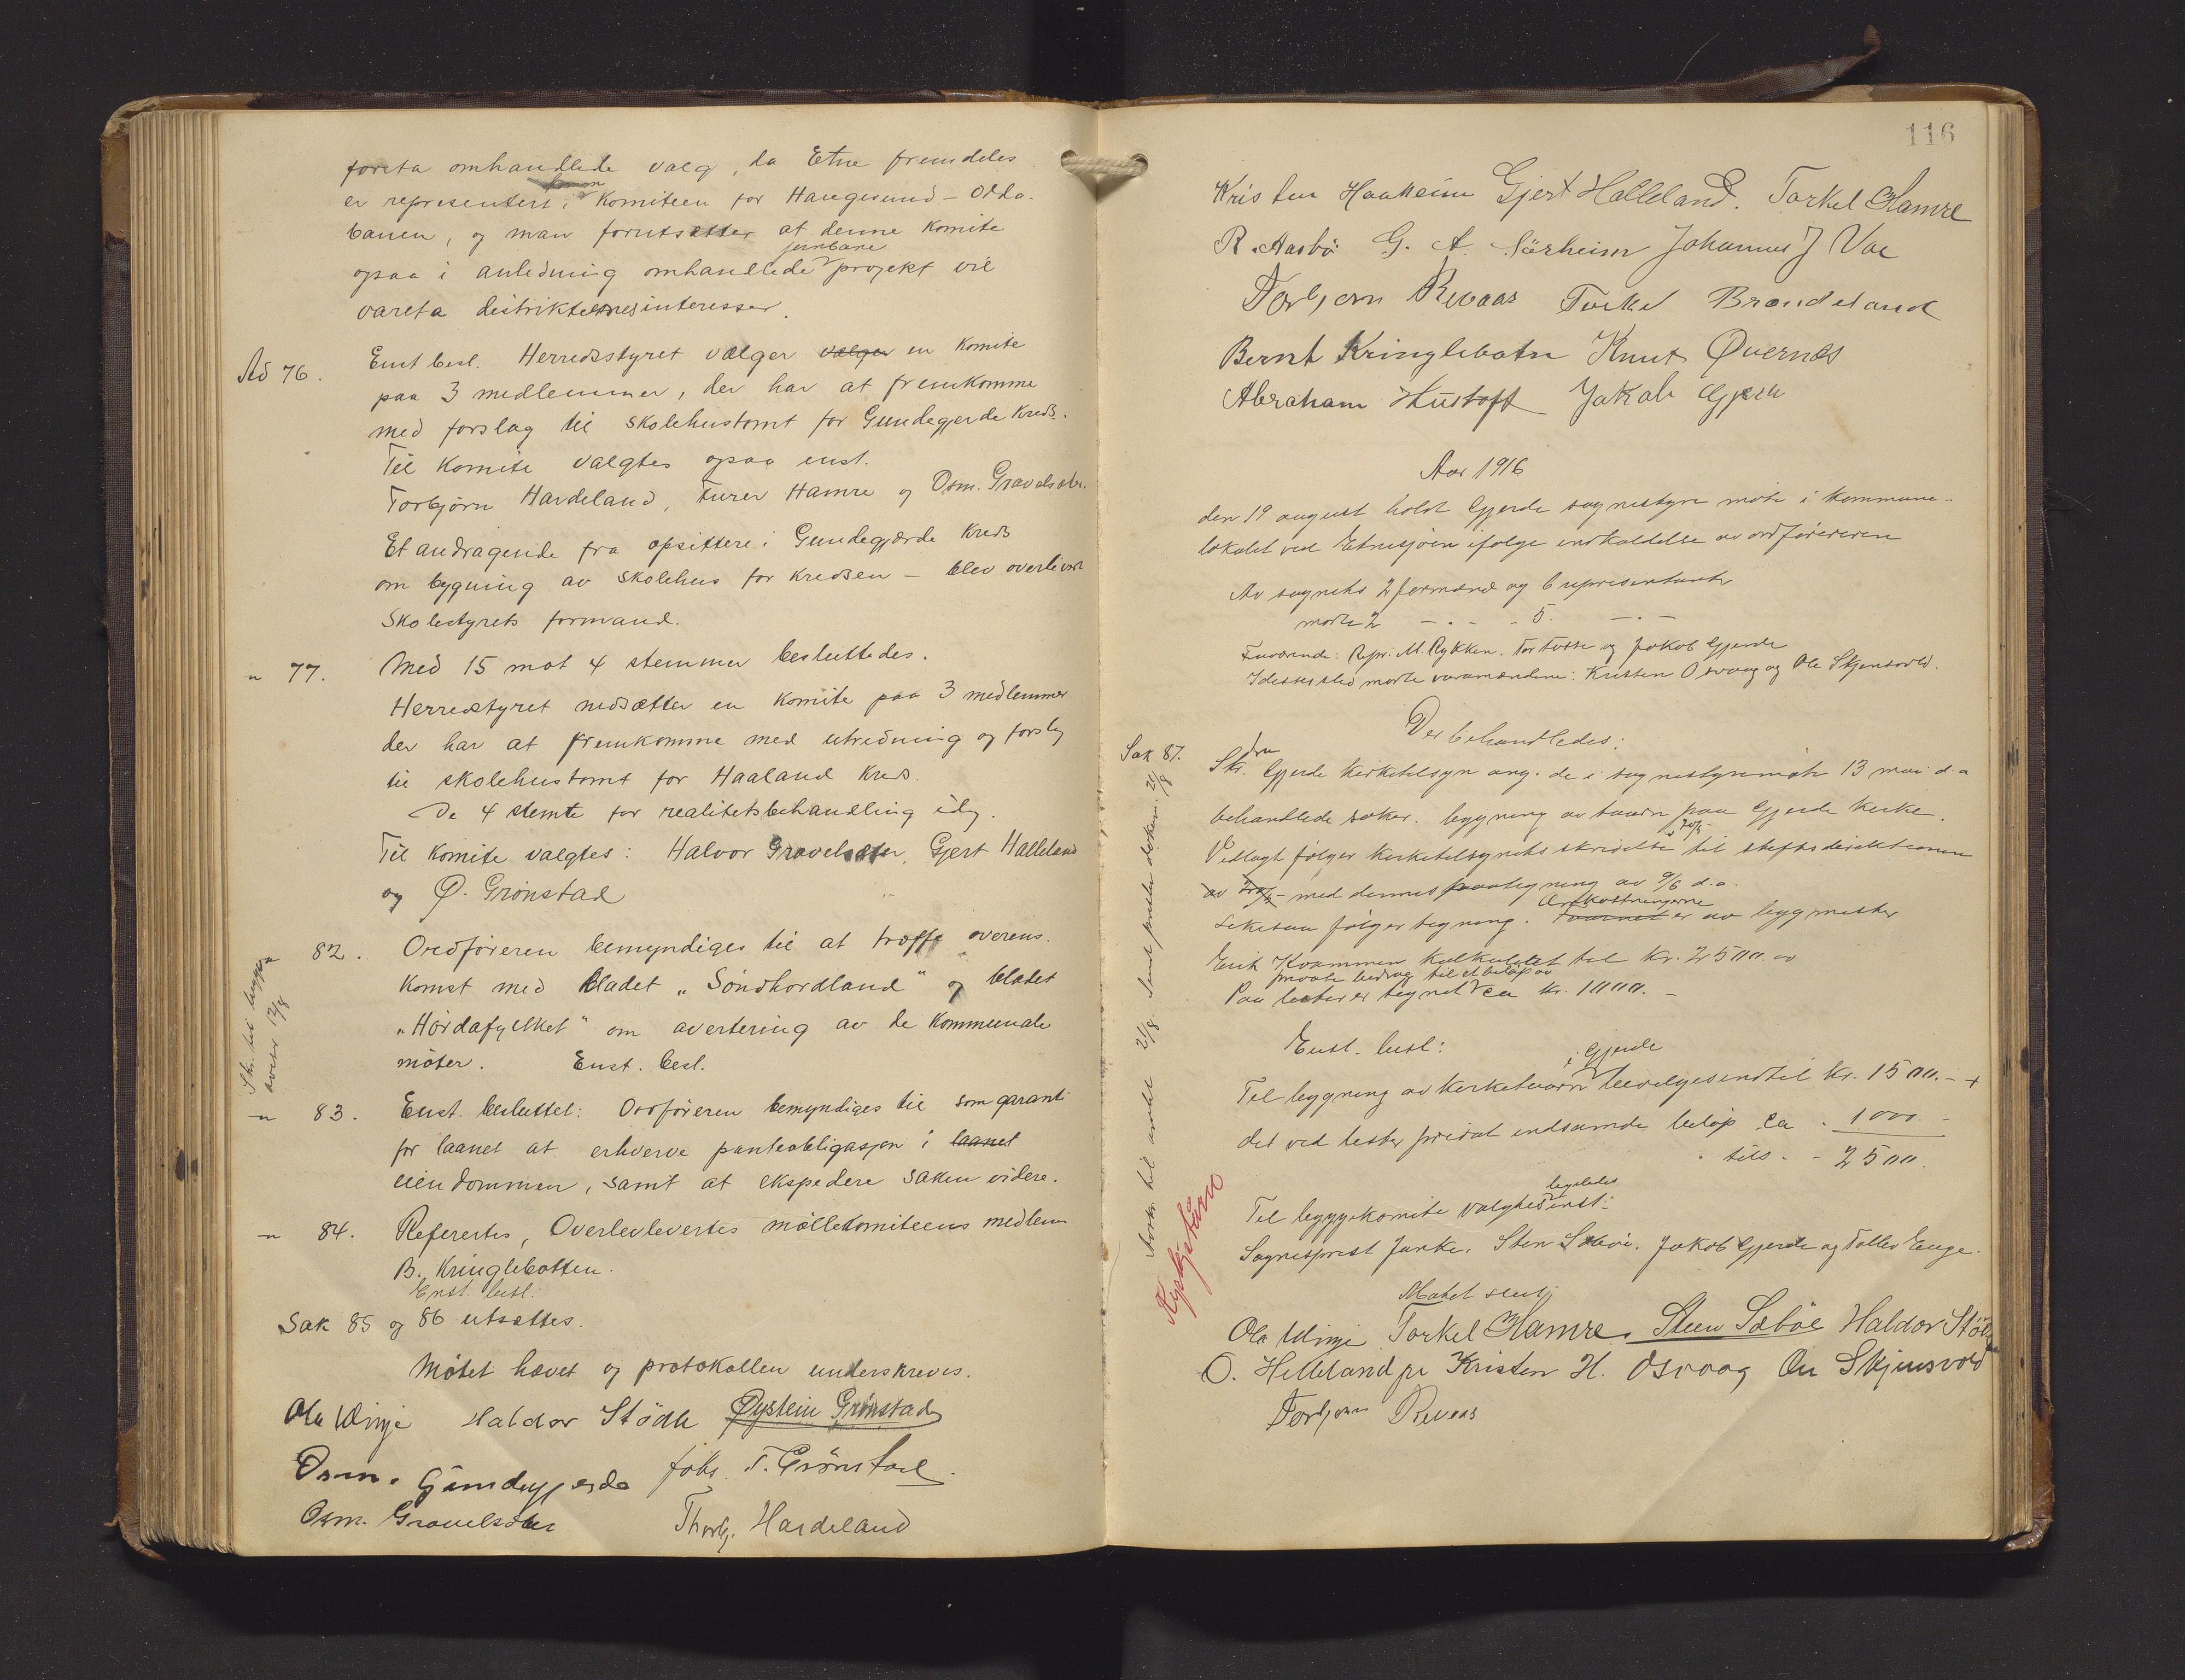 foreta omhandlede valg, da Etne fremdeles
er representert i komiteen for Haugesund - Odda-
banen, og man forutsætter at denne komite
ogsaa i anledning omhandlede jernbane projekt vil
vareta distrikternes interesser.
Ad 76. Enst besl. Herredsstyret vælger vælger en komite
paa 3 medlemmer, der har at fremkomme
med forslag til skolehustomt for Gundegjerde Kreds.
Til komite valgtes ogsaa enst.
Torbjørn Hardeland, Eurer Hamre og Osm. Gravelsæter.
Et andragende fra opsittere i Gundegjærde Kreds
om bygning av skolehus for kredsen - blev overlevert
Skolestyrets formand.
" 77. Med 15 mot 4 stemmer besluttedes.
Herredstyret nedsætter en komite paa 3 medlemmer
der har at fremkomme med utredning og forslag
til skolehustomt for Haaland Kreds.
De 4 stemte for realitetsbehandling idag.
Til komite valgtes: Halvor Gravelsæter, Gjert Halleland
og Ø. Grønstad
" 82. Ordføreren bemyndiges til at træffe overens-
komst med Bladet "Søndhordland" og bladet
"Hordafylket" om avertering av de kommunale
møter. Enst. besl.
Skr. til begge
aviser 12/8
" 83. Enst. besluttet: Ordføreren bemyndiges til som garanti
for laanet at erhverve panteobligasjon i laanet
eiendommen, samt at ekspedere saken videre.
" 84. Refertes, Overlevlevertes møllekomiteens medlem
B. Kringlebotten.
Enst. besl.
Sak 85 og 86 utsættes.
Møtet hævet og protokollen underskreves.
Ola Vinje Haldor Stødle Øystein Grønstad
Osm. Gundegjerde Johs. T. Grønstad.
Osm. Gravelsæter Thorbj. Hardeland
116
Kristen Haaheim Gjert Halleland. Torkel Hamre
R. Aasbö G. A. Särheim Johannes J Vae
Torbjørn Revaas Torkel Brændeland
Bernt Kringlebotn Knut Qvernes
Abraham Hustoft Jakob Gjerde
Aar 1916
den 19 august holdt Gjerde sognestyre møte i kommune-
lokalet ved Etnesjøen ifølge indkaldelse av ordføreren
Av sognets 2 formænd og 6 repræsentanter
møtte 2 - " - - 5. - " -
Fraværende: Repr. M. Rykken. Tor Tesse og Jakob Gjerde
I dessers sted møtte varamændene: Kristen Osvaag og Ole Skjensvold.
Der behandledes:
Sak 87. Skr. fra Gjerde kirketilsyn ang. de i sognestyremøte 13 mai d.a
behandlede saker. bygning av taarn paa Gjerde kirke.
Vedlagt følger kirketilsynets skrivelse av 20/5 til stiftsdirektionen
av 20/5 - med dennes paategning av 9/6 d.a.
Likesaa følger tegning. Omkostningerne Taarnet er av bygmester
Erik Kvammen kalkulert til kr. 2500.00
Paa lister er tegnet private bidrag til et beløp av ca kr. 1000. -
Enst. besl:
Til bygning av kirketaarn i Gjerde bevilges indtil kr. 1500. - +
det ved lister privat indsamde beløp ca " 1000. -
tils. - 2500.
Til byggekomite valgtes ligeledes enst:
Sogneprest Junke. Sten Sæbøe. Jakob Gjerde og Tollev Enge.
Møtet slut
Ola Vinje Torkel Hamre. Steen Sæbøe Haldor Stødle
O. Helleland pr Kristen H. Osvaag Ole Skjensvold
Torbjørn Revaas
Kyrkjetårn